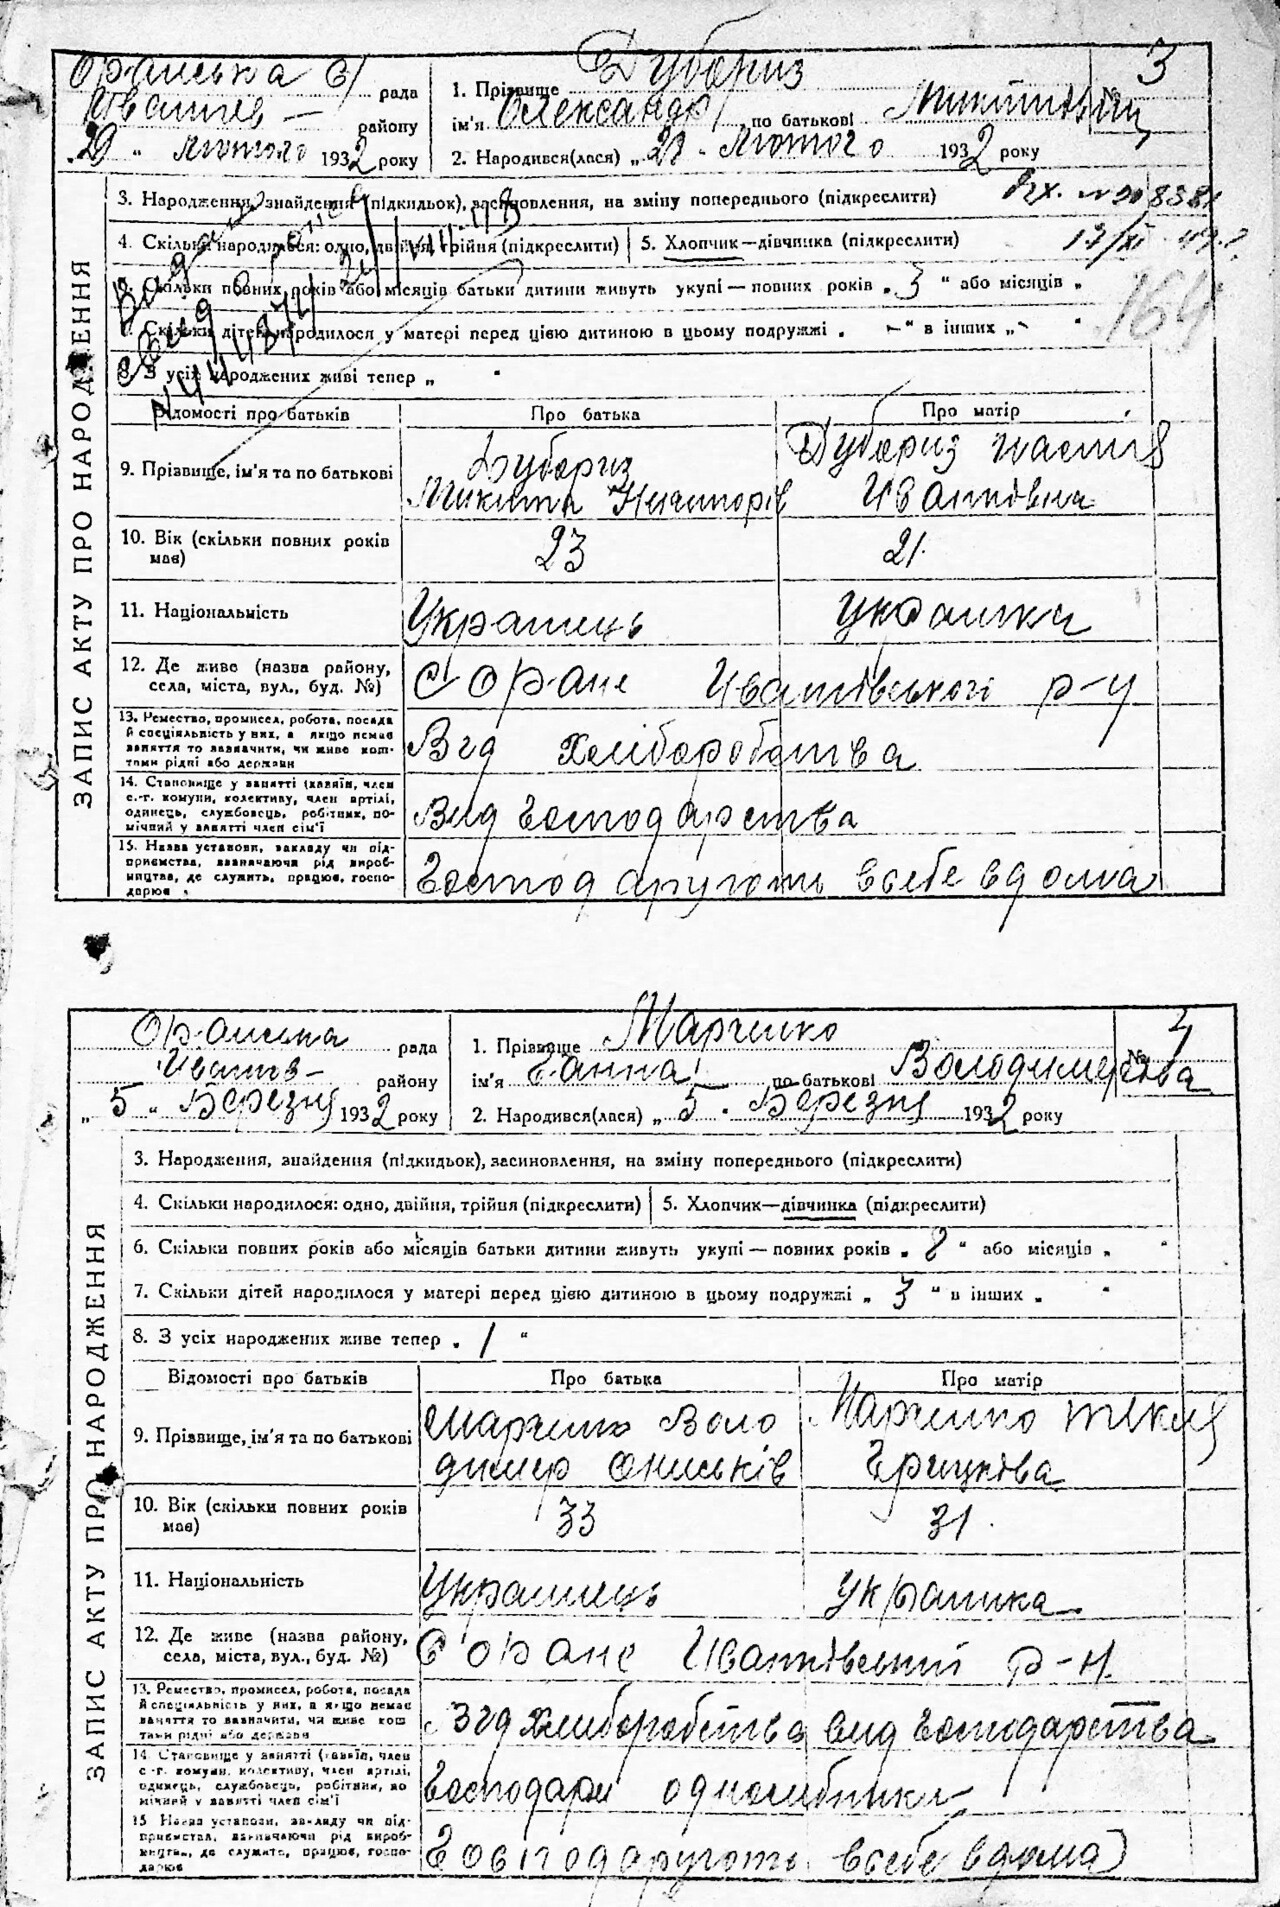 Оранська с/ рада
Іванків— району
„29„ Лютого 1932 року
1. Прізвище Дубериз
ім'я Олександр по батькові Микитович
3
2. Народився(лася) „21„ Лютого 1932 року
3. Народження, знайдення (підкидьок), засиновлення, на зміну попереднього (підкреслити)
Вх. № 208381
4. Скільки народилося: одно, двійня, трійня (підкреслити) 5. Хлопчик—дівчинка (підкреслити)
17/XI 47?
6. Скільки повних років або місяців батьки дитини живуть укупі—повних років „3" або місяців „
164
7. Скільки дітей народилося у матері перед цією дитиною в цьому подружжі „ –" в інших „–"
8. З усіх народжених живі тепер „ "
Відомості про батьків Про батька Про матір
9. Прізвище, ім'я та по батькові
Дубериз Микита Ничипорів
Дубериз Настія Іванківна
10. Вік (скільки повних років має) 23 21.
11. Національність Украінець Украінка
12. Де живе (назва району, села, міста, вул., буд. №)
С Оране Иванківського р-у
13. Ремество, промисел, робота, посада й спеціяльність у них, а якщо немає заняття то зазначити, чи живе коштами рідні або держави
Від хліборобства
14. Становище у занятті (хазяїн, член с.-г. комуни, колективу, член артілі, одинець, службовець, робітник, помічний у занятті член сім'ї
Вид господарства
15. Назва установи, закладу чи підприємства, зазначаючи рід виробництва, де служить, працює, господарює
Господаруготь всебе вдома
ЗАПИС АКТУ ПРО НАРОДЖЕННЯ
Оранська рада
Иванків— району
„5„ Березня 1932 року
1. Прізвище Марченко
ім'я Ганна по батькові Володимерівва
№ 4
2. Народився(лася) „5„ Березня 1932 року
3. Народження, знайдення (підкидьок), засиновлення, на зміну попереднього (підкреслити)
4. Скільки народилося: одно, двійня, трійня (підкреслити) 5. Хлопчик—дівчинка (підкреслити)
6. Скільки повних років або місяців батьки дитини живуть укупі—повних років „8" або місяців „ "
7. Скільки дітей народилося у матері перед цією дитиною в цьому подружжі „3" в інших „ "
8. З усіх народжених живе тепер „1"
Відомості про батьків Про батька Про матір
9. Прізвище, ім'я та по батькові
Марченко Володимер Ониськів
Марченко Текля Грицкова
10. Вік (скільки повних років має) 33 31.
11. Національність Украінець Украінка
12. Де живе (назва району, села, міста, вул., буд. №)
С Оране Иванківський р-н.
13. Ремество, промисел, робота, посада й спеціяльність у них, а якщо немає заняття то зазначити, чи живе коштами рідні або держави
Від хлиборобства вид господарства
14. Становище у занятті (хазяїн, член с.-г. комуни, колективу, член артілі, одинець, службовець, робітник, помічний у занятті член сім'ї
Господари односибники
15. Назва установи, закладу чи підприємства, зазначаючи рід виробництва, де служить, працює, господарює
Господаруготь всебе вдома
ЗАПИС АКТУ ПРО НАРОДЖЕННЯ